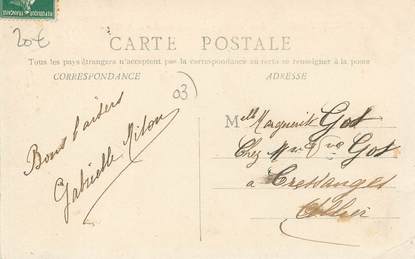 RÉPUBLIQUE FRANÇAISE
20€
CARTE POSTALE
Tous les pays étrangers n'acceptent pas la correspondance au recto se renseigner à la poste
CORRESPONDANCE
ADRESSE
03)
Bons baisers
Gabrielle
Melle Marguerite Got
Chez Mme Vve Got
à Cressanges
Allier